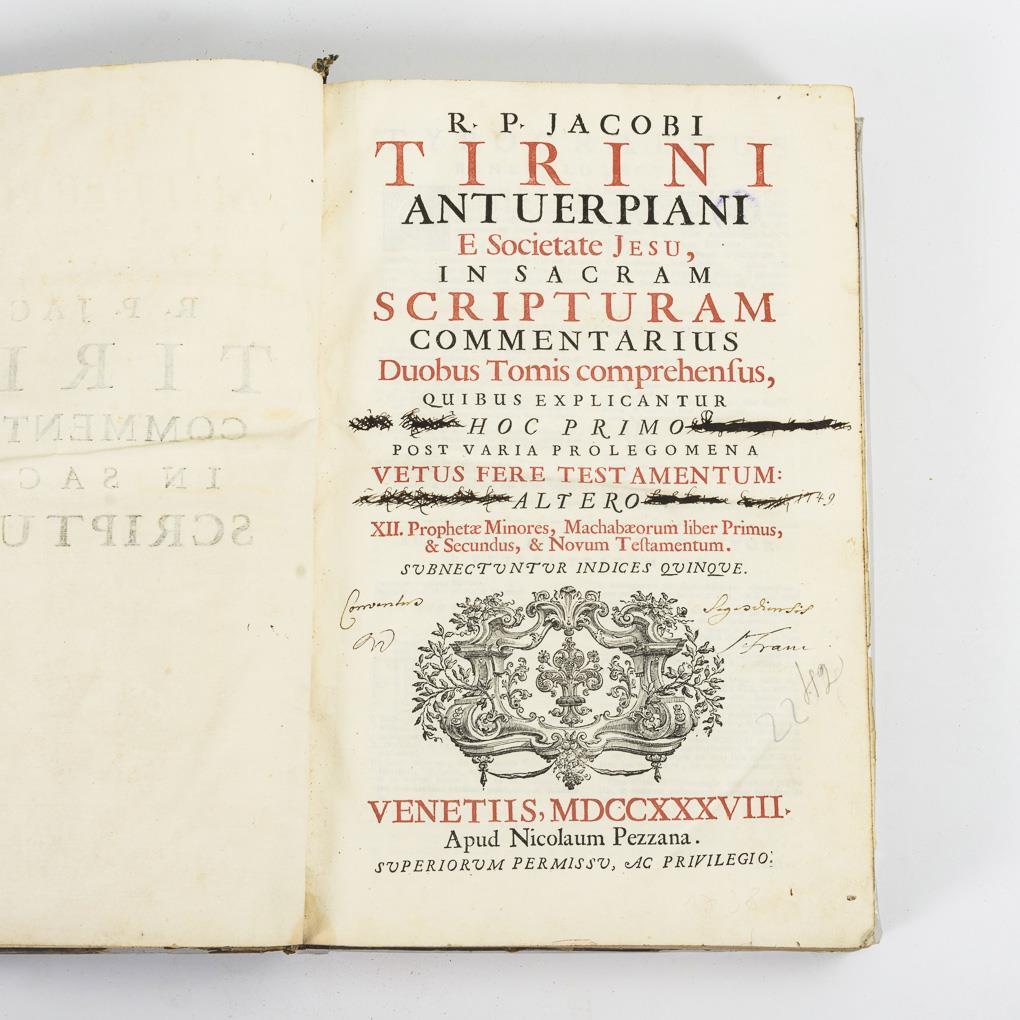 R. P. JACOBI
TIRINI
ANTUERPIANI
E Societate JESU,
IN SACRAM
SCRIPTURAM
COMMENTARIUS
Duobus Tomis comprehenſus,
QUIBUS EXPLICANTUR
HOC PRIMO
POST VARIA PROLEGOMENA
VETUS FERE TESTAMENTUM:
ALTERO 1749
XII. Prophetæ Minores, Machabæorum liber Primus,
& Secundus, & Novum Teſtamentum.
SVBNECTVNTVR INDICES QVINQVE.
Conventus Segediensis
Franc
22/42
VENETIIS, MDCCXXXVIII.
Apud Nicolaum Pezzana.
SVPERIORVM PERMISSV, AC PRIVILEGIO.
R. P. JAC
TIRI
COMMENT
IN SAC
SCRIPTU